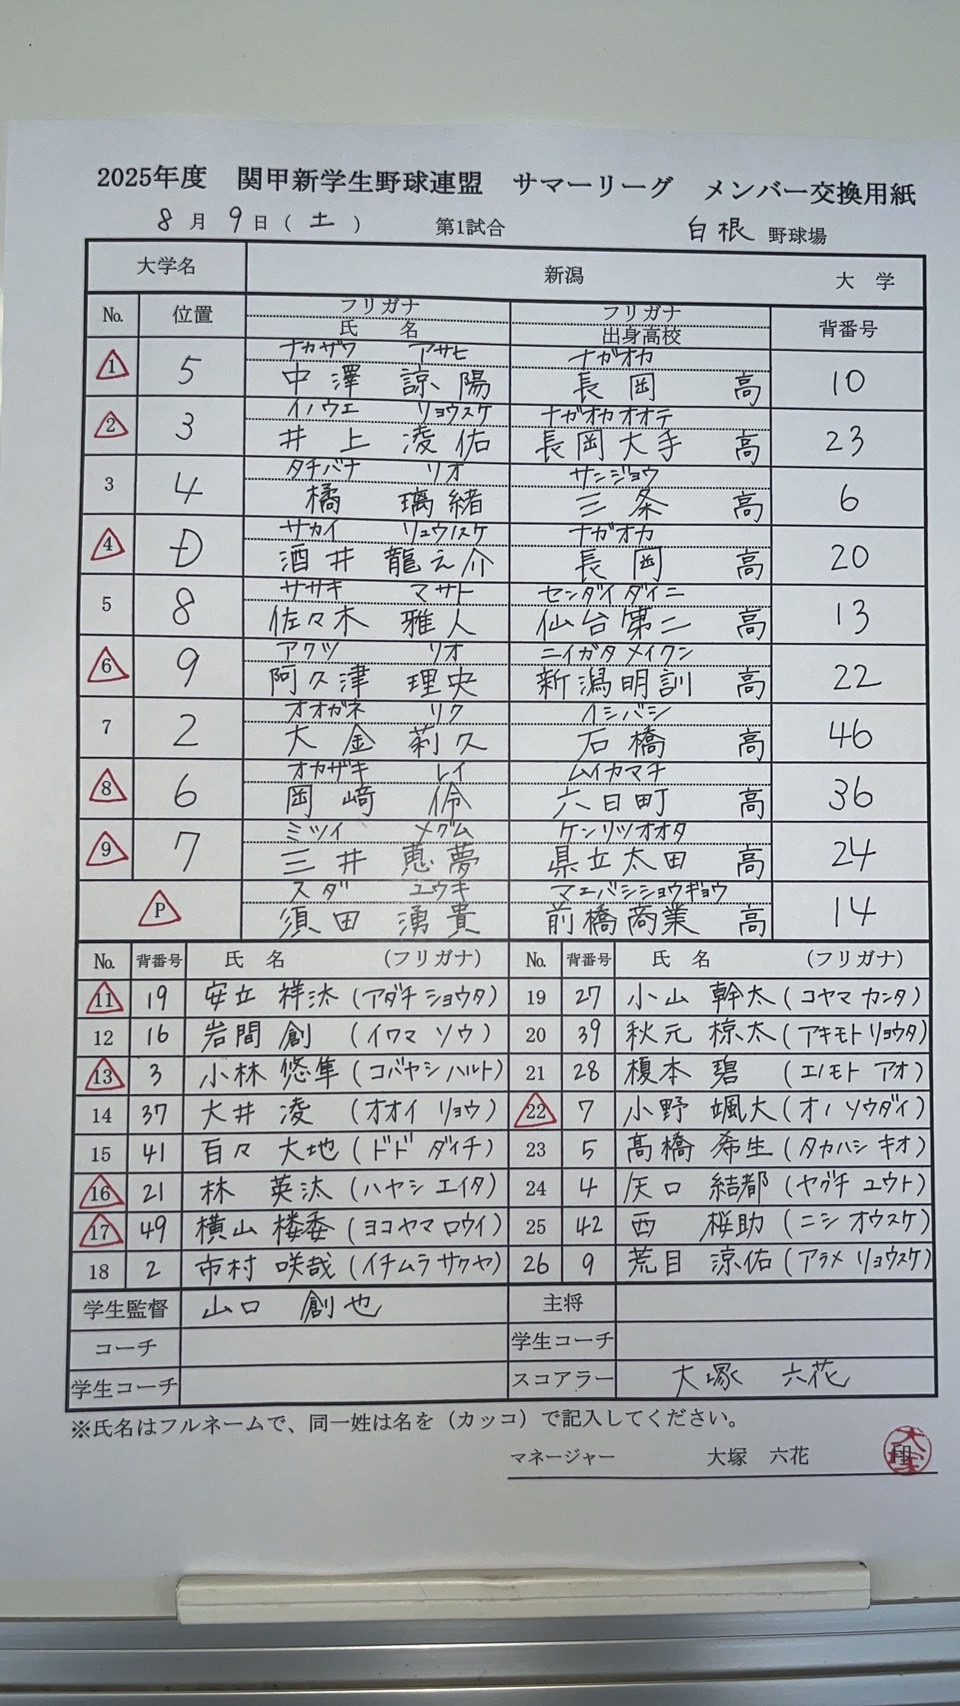 2025年度 関甲新学生野球連盟 サマーリーグ メンバー交換用紙
8月 9日(土) 第1試合 白根 野球場
大学名 新潟 大学
No. 位置 フリガナ 氏名 フリガナ 出身高校 背番号
ナカザワ アサヒ ナガオカ
1 5 中澤 諒陽 長岡 高 10
イノウエ リョウスケ ナガオカオオテ
2 3 井上 凌佑 長岡大手 高 23
タチバナ リオ サンジョウ
3 4 橘 璃緒 三条 高 6
サカイ リュウノスケ ナガオカ
4 D 酒井 龍之介 長岡 高 20
ササキ マサト センダイダイニ
5 8 佐々木 雅人 仙台第二 高 13
アクツ リオ ニイガタメイクン
6 9 阿久津 理央 新潟明訓 高 22
オオガネ リク イシバシ
7 2 大金 莉久 石橋 高 46
オカザキ レイ ムイカマチ
8 6 岡﨑 伶 六日町 高 36
ミツイ メグム ケンリツオオタ
9 7 三井 恵夢 県立太田 高 24
スダ ユウキ マエバシショウギョウ
P 須田 湧貴 前橋商業 高 14
No. 背番号 氏名 (フリガナ) No. 背番号 氏名 (フリガナ)
11 19 安立 祥汰(アダチ ショウタ) 19 27 小山 幹太(コヤマ カンタ)
12 16 岩間 創(イワマ ソウ) 20 39 秋元 椋太(アキモト リョウタ)
13 3 小林 悠隼(コバヤシ ハルト) 21 28 榎本 碧(エノモト アオ)
14 37 大井 凌(オオイ リョウ) 22 7 小野 颯大(オノ ソウダイ)
15 41 百々 大地(ドド ダイチ) 23 5 髙橋 希生(タカハシ キオ)
16 21 林 英汰(ハヤシ エイタ) 24 4 矢口 結都(ヤグチ ユウト)
17 49 横山 楼委(ヨコヤマ ロウイ) 25 42 西 桜助(ニシ オウスケ)
18 2 市村 咲哉(イチムラ サクヤ) 26 9 荒目 涼佑(アラメ リョウスケ)
学生監督 山口 創也 主将
コーチ 学生コーチ
学生コーチ スコアラー 大塚 六花
※氏名はフルネームで、同一姓は名を(カッコ)で記入してください。
マネージャー 大塚 六花 印
大塚